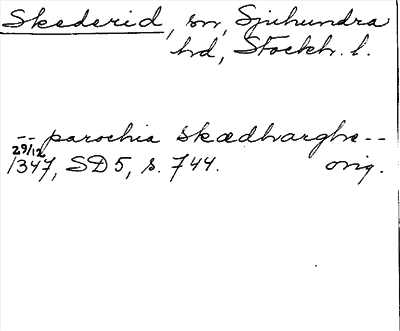 Skederid, sn, Sjuhundra
hd, Stockh. l.
-- parochia skædharghe --
29/12
1347, SD 5, s. 744. orig.